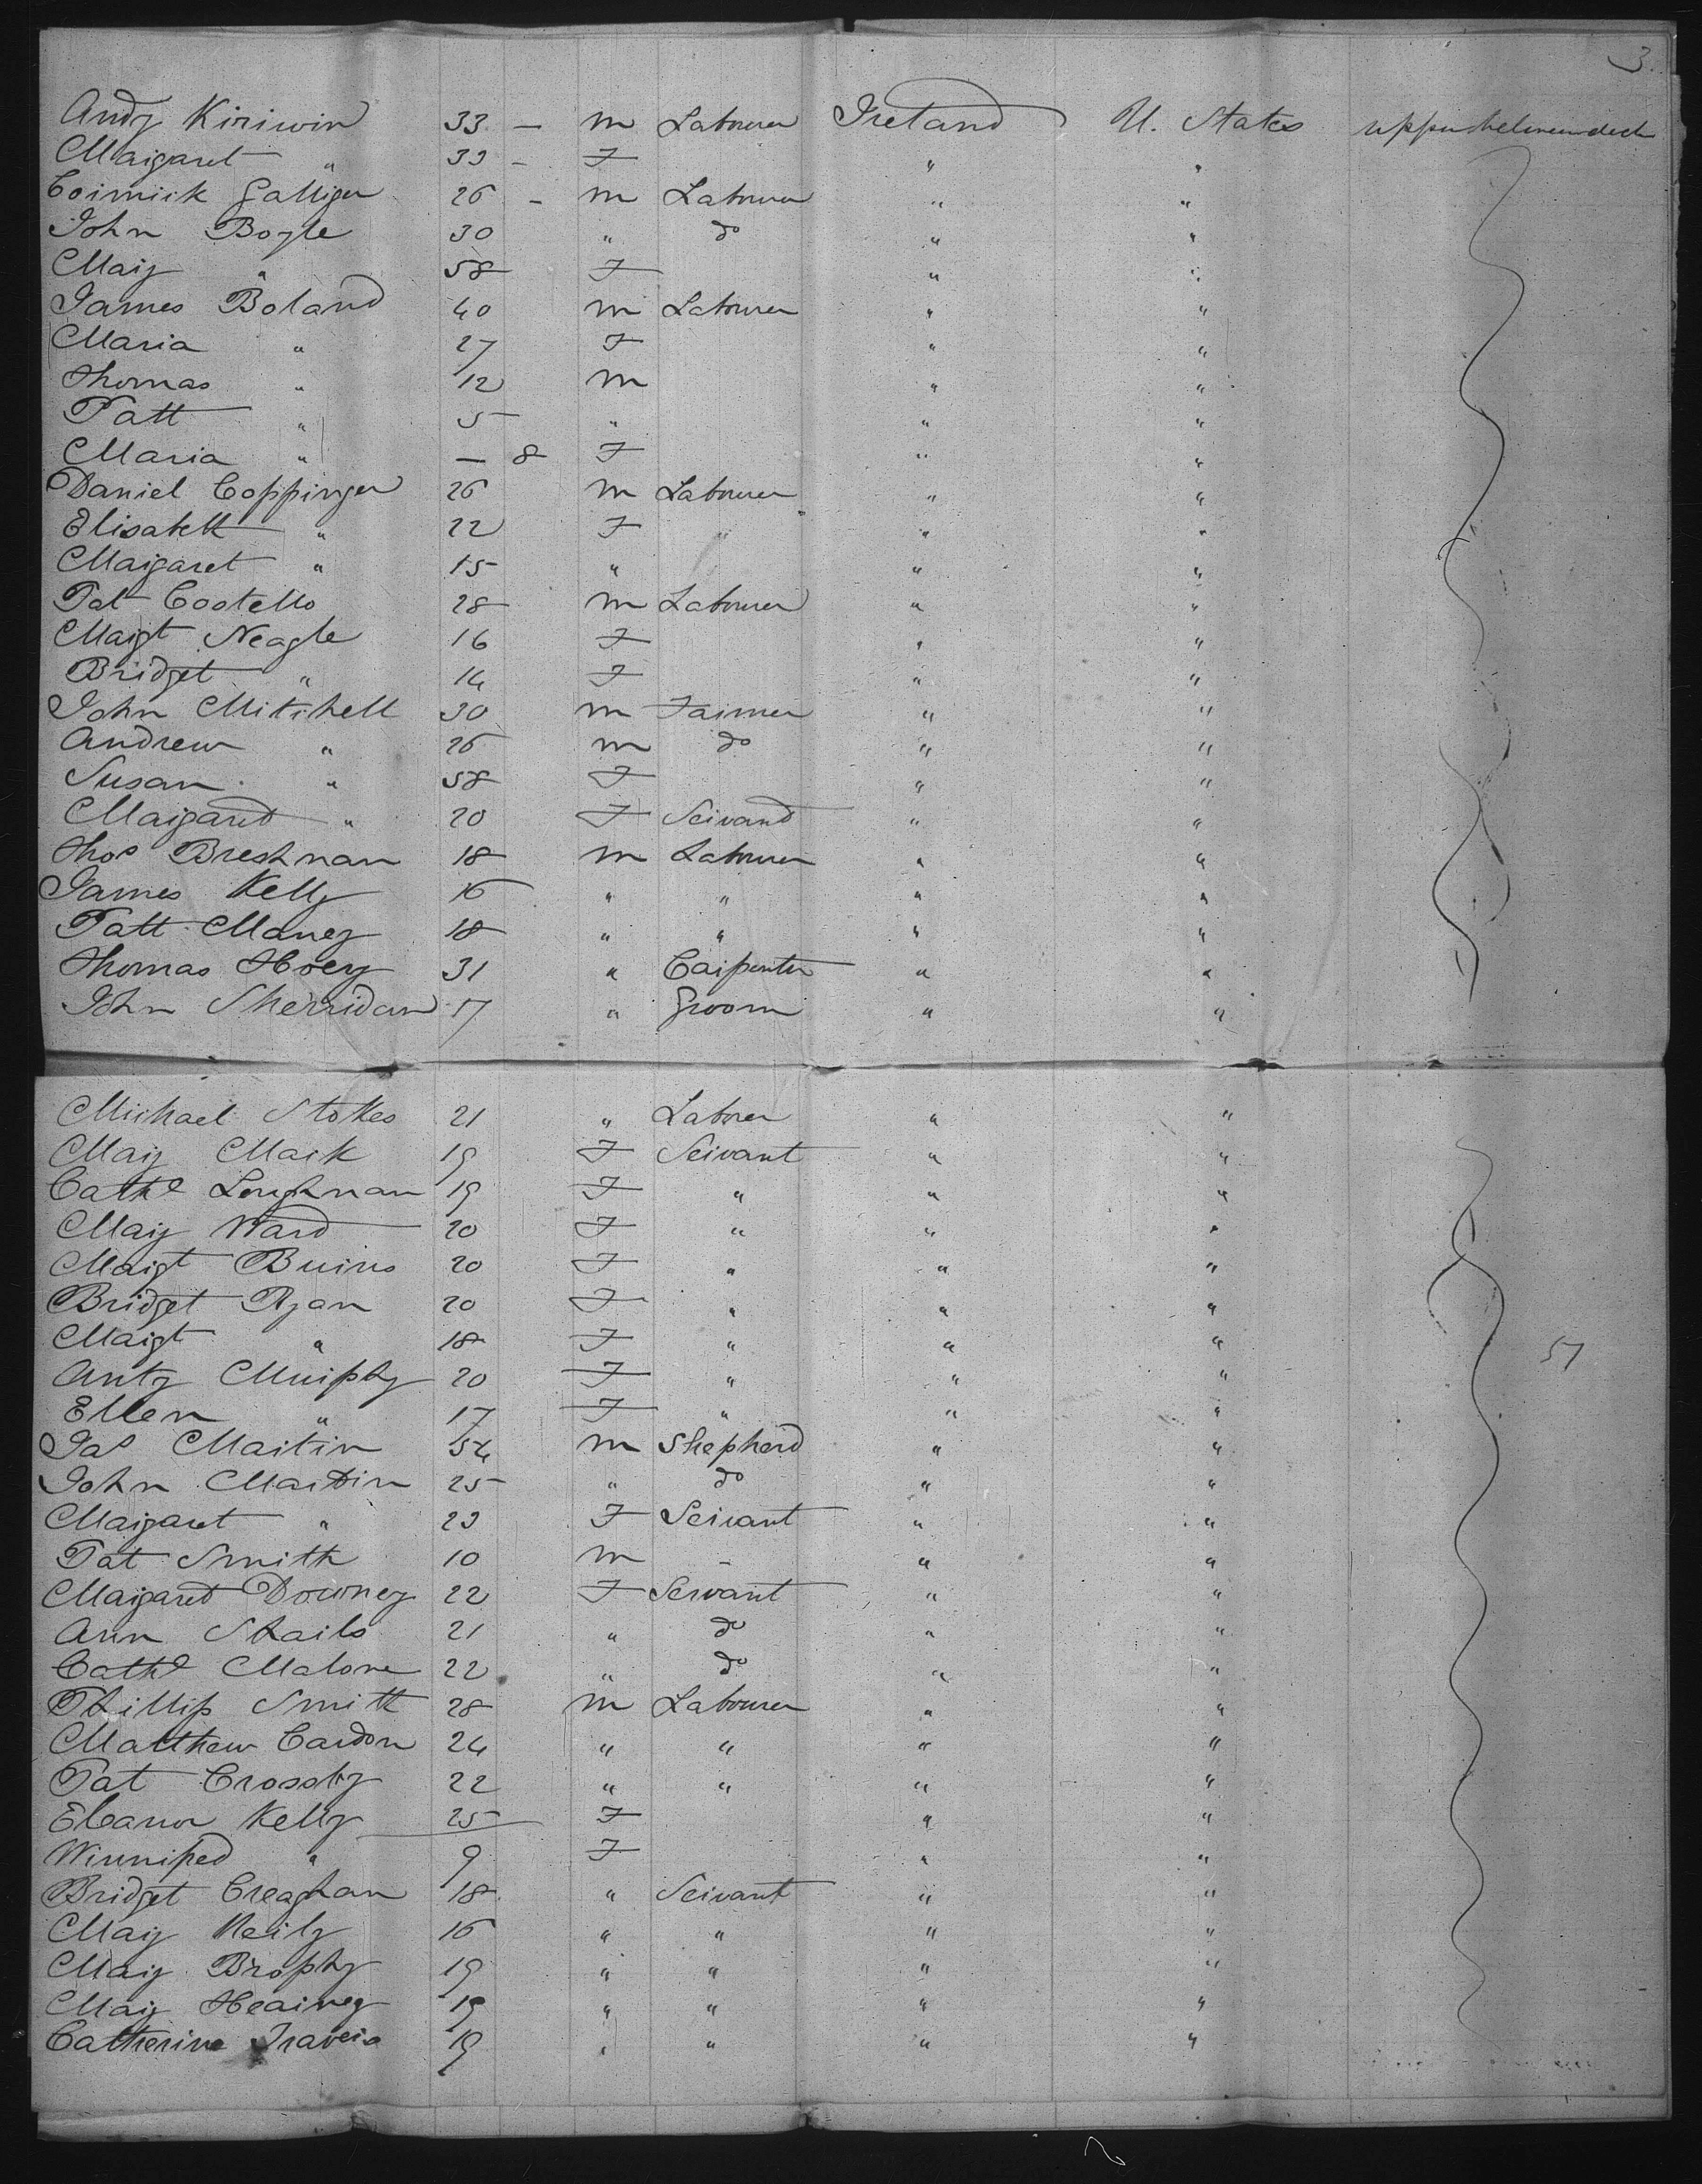 3.
Andy Kiriwin 33 — m Labourer Ireland U. States upper between deck
Margaret " 33 - F " "
Cormick Galliger 26 - m Labourer " "
John Bogle 30 " do " "
Mary " 58 F " "
James Boland 40 m Labourer " "
Maria " 27 F " "
Thomas " 12 m " "
Patt " 5 " " "
Maria " — 8 F " "
Daniel Coppinger 26 m Labourer " "
Elisabeth " 22 F " "
Margaret " 15 " " "
Pat Costello 28 m Labourer " "
Margt Neagle 16 F " "
Bridget " 14 F " "
John Mitchell 30 m Farmer " "
Andrew " 26 m do " "
Susan " 58 F " "
Margaret " 20 F Servand " "
Thos Breshnan 18 m Labourer " "
James Kelly 16 " " " "
Patt Maney 18 " " " "
Thomas Hoey 31 " Carpenter " "
John Sherridan 17 " Groom " "
Michael Stokes 21 " Laborer " "
Mary Mark 19 F Servant " "
Cathe Loughnan 19 F " " "
Mary Ward 20 F " " "
Margt Burns 20 F " " "
Bridget Ryan 20 F " " "
Margt " 18 F " " " 51
Anty Murphy 20 F " " "
Ellen " 17 F " " "
Jas Martin 54 m Shepherd " "
John Martin 25 " do " "
Margaret " 23 F Servant " "
Pat Smith 10 m - " "
Margaret Downey 22 F Servant " "
Ann Shails 21 " do " "
Cathe Malone 22 " do " "
Phillip Smith 28 m Labourer " "
Matthew Cardon 24 " " " "
Pat Crossby 22 " " " "
Eleanor Kelly 25 F " "
Winnifred " 9 F " "
Bridget Creaghan 18 " Servant " "
Mary Reily 16 " " " "
Mary Brophy 19 " " " "
Mary Hearney 19 " " " "
Catherine Travers 19 " " " "